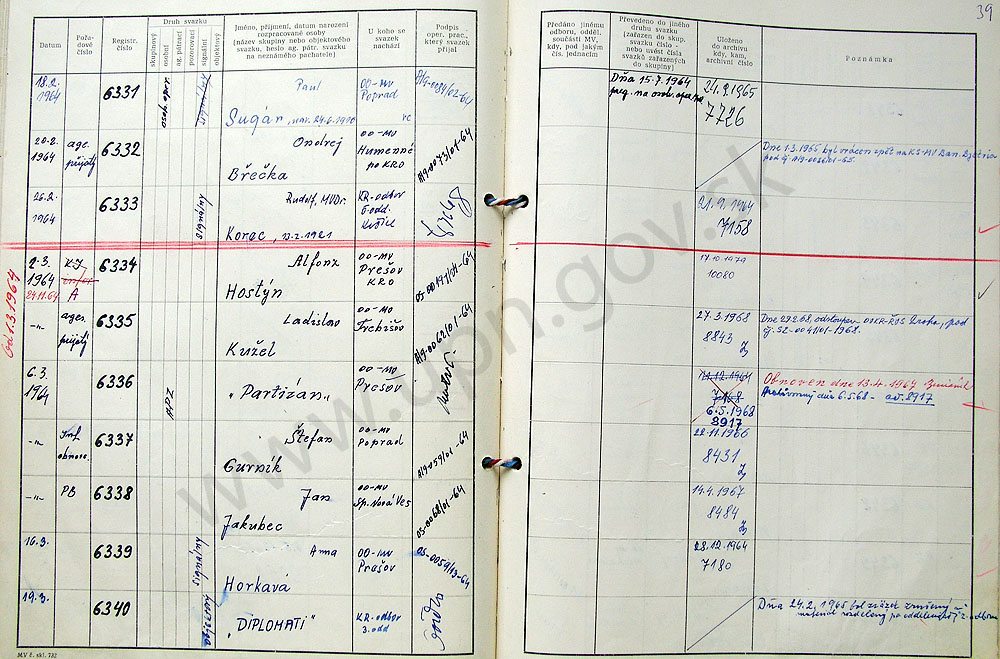 39
Datum
Pořa-
dové
číslo
Registr.
číslo
Druh svazku
skupinový
osobní
ag. pátrací
pozorovací
signální
objektový
Jméno, příjmení, datum narození
rozpracované osoby
(název skupiny nebo objektového
svazku, heslo ag. pátr. svazku
na neznámého pachatele)
U koho se
svazek
nachází
Podpis
oper. prac.,
který svazek
Předáno jinému
odboru, odděl.
součásti MV,
kdy, pod jakým
čís. jednacím
Převedeno do jiného
druhu svazku
(zařazen do skup.
svazku číslo -
nebo uvést čísla
svazků zařazených
do skupiny)
Uloženo
do archivu
kdy, kam,
archivní číslo
Poznámka
18.2.
1964
6331
Paul
Sugár, nar. 24.6.1910
OO-MV
Poprad
A/9-0084/02-64
Dňa 15.7.1964
24.9.1965
7726
20.2.
1964
age.
přijatý
6332
Ondrej
Břečka
OO-MV
Humenné
po KRO
A/9-0073/01-64
Dne 1.3.1965 byl vrácen zpět na KS-MV Ban. Bystrica
pod čj. A/9-0036/01-65.
26.2.
1964
6333
signálny
Rudolf, MVDr.
Korec, 13.2.1921
KR-odbor
6 odd.
Košice
21.9.1964
7158
Od 1.3.1964
2.3.
1964
24.11.64
KJ
A
6334
Alfonz
Hostýn
OO-MV
Prešov
KRO
OS-00197/01-64
17.10.1979
10080
-"-
agen.
přijatý
6335
Ladislav
Kužel
OO-MV
Trebišov
A/9-0062/01-64
27.3.1968
8843
Dne 29.2.68 odstoupen
čj. SZ-0041/01-1968.
6.3.
1964
6336
MPZ
"Partizán"
OO-MV
Prešov
11.12.1964
7168
6.5.1968
8917
Obnoven dne 13.4.1967
Archivovaný dne 6.5.68 - a.č. 8917
-"-
Inf.
obnov.
6337
Štefan
Gurník
OO-MV
Poprad
A/9-059/01-64
22.11.1966
8431
-"-
PB
6338
Jan
Jakubec
OO-MV
Sp. Nová Ves
OS-0068/01-64
14.4.1967
8484
16.3.
6339
signálny
Anna
Horkavá
OO-MV
Prešov
OS-0059/43-64
28.12.1964
7180
19.3.
6340
"DIPLOMATI"
KR-odbor
3. odd
Dňa 24.2.1965 bol zväzok zrušený -
materiál rozdelený po oddeleniach 2. odboru
MV č. skl. 732
www.upn.gov.sk